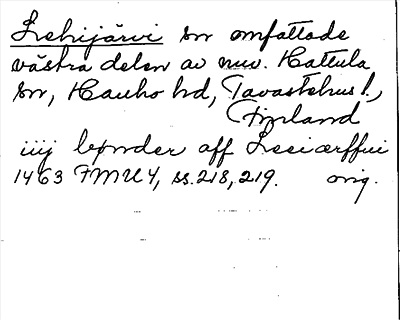 Lehijärvi sn omfattade
västra delen av nuv. Hattula
sn, Hauho hd, Tavastehus l.,
Finland
iiij bønder aff Lesiærffui
1463 FMU 4, ss. 218, 219. orig.